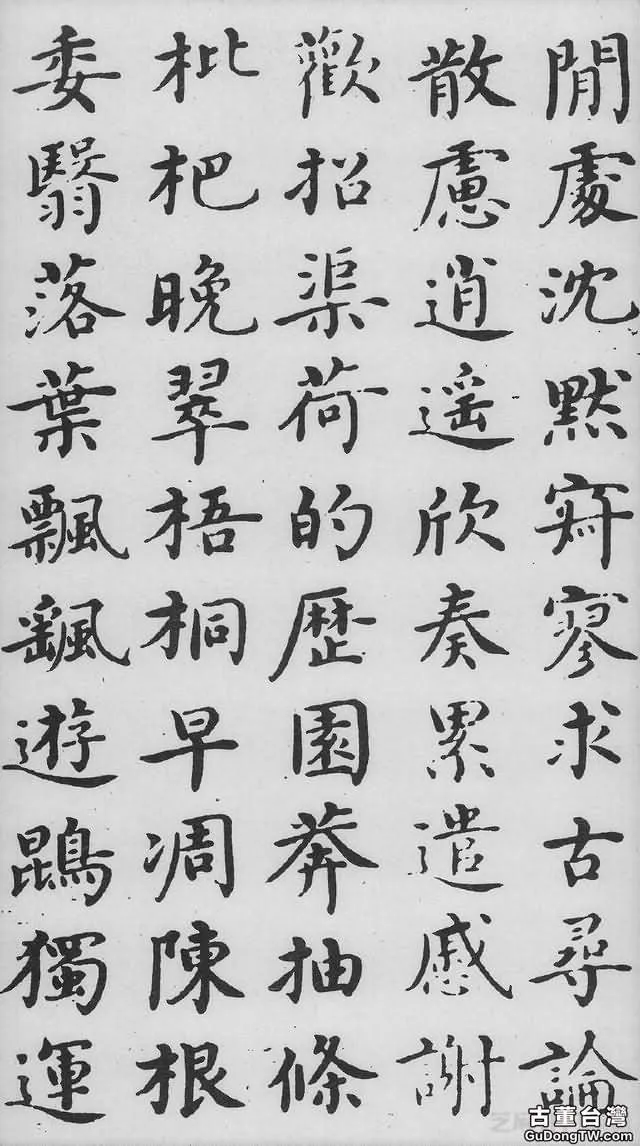 閒處沈默寂寥求古尋論
散慮逍遙欣奏累遣慼謝
歡招渠荷的歷園莽抽條
枇杷晚翠梧桐早凋陳根
委翳落葉飄颻遊鵾獨運
古董台灣
GuDongTW.com